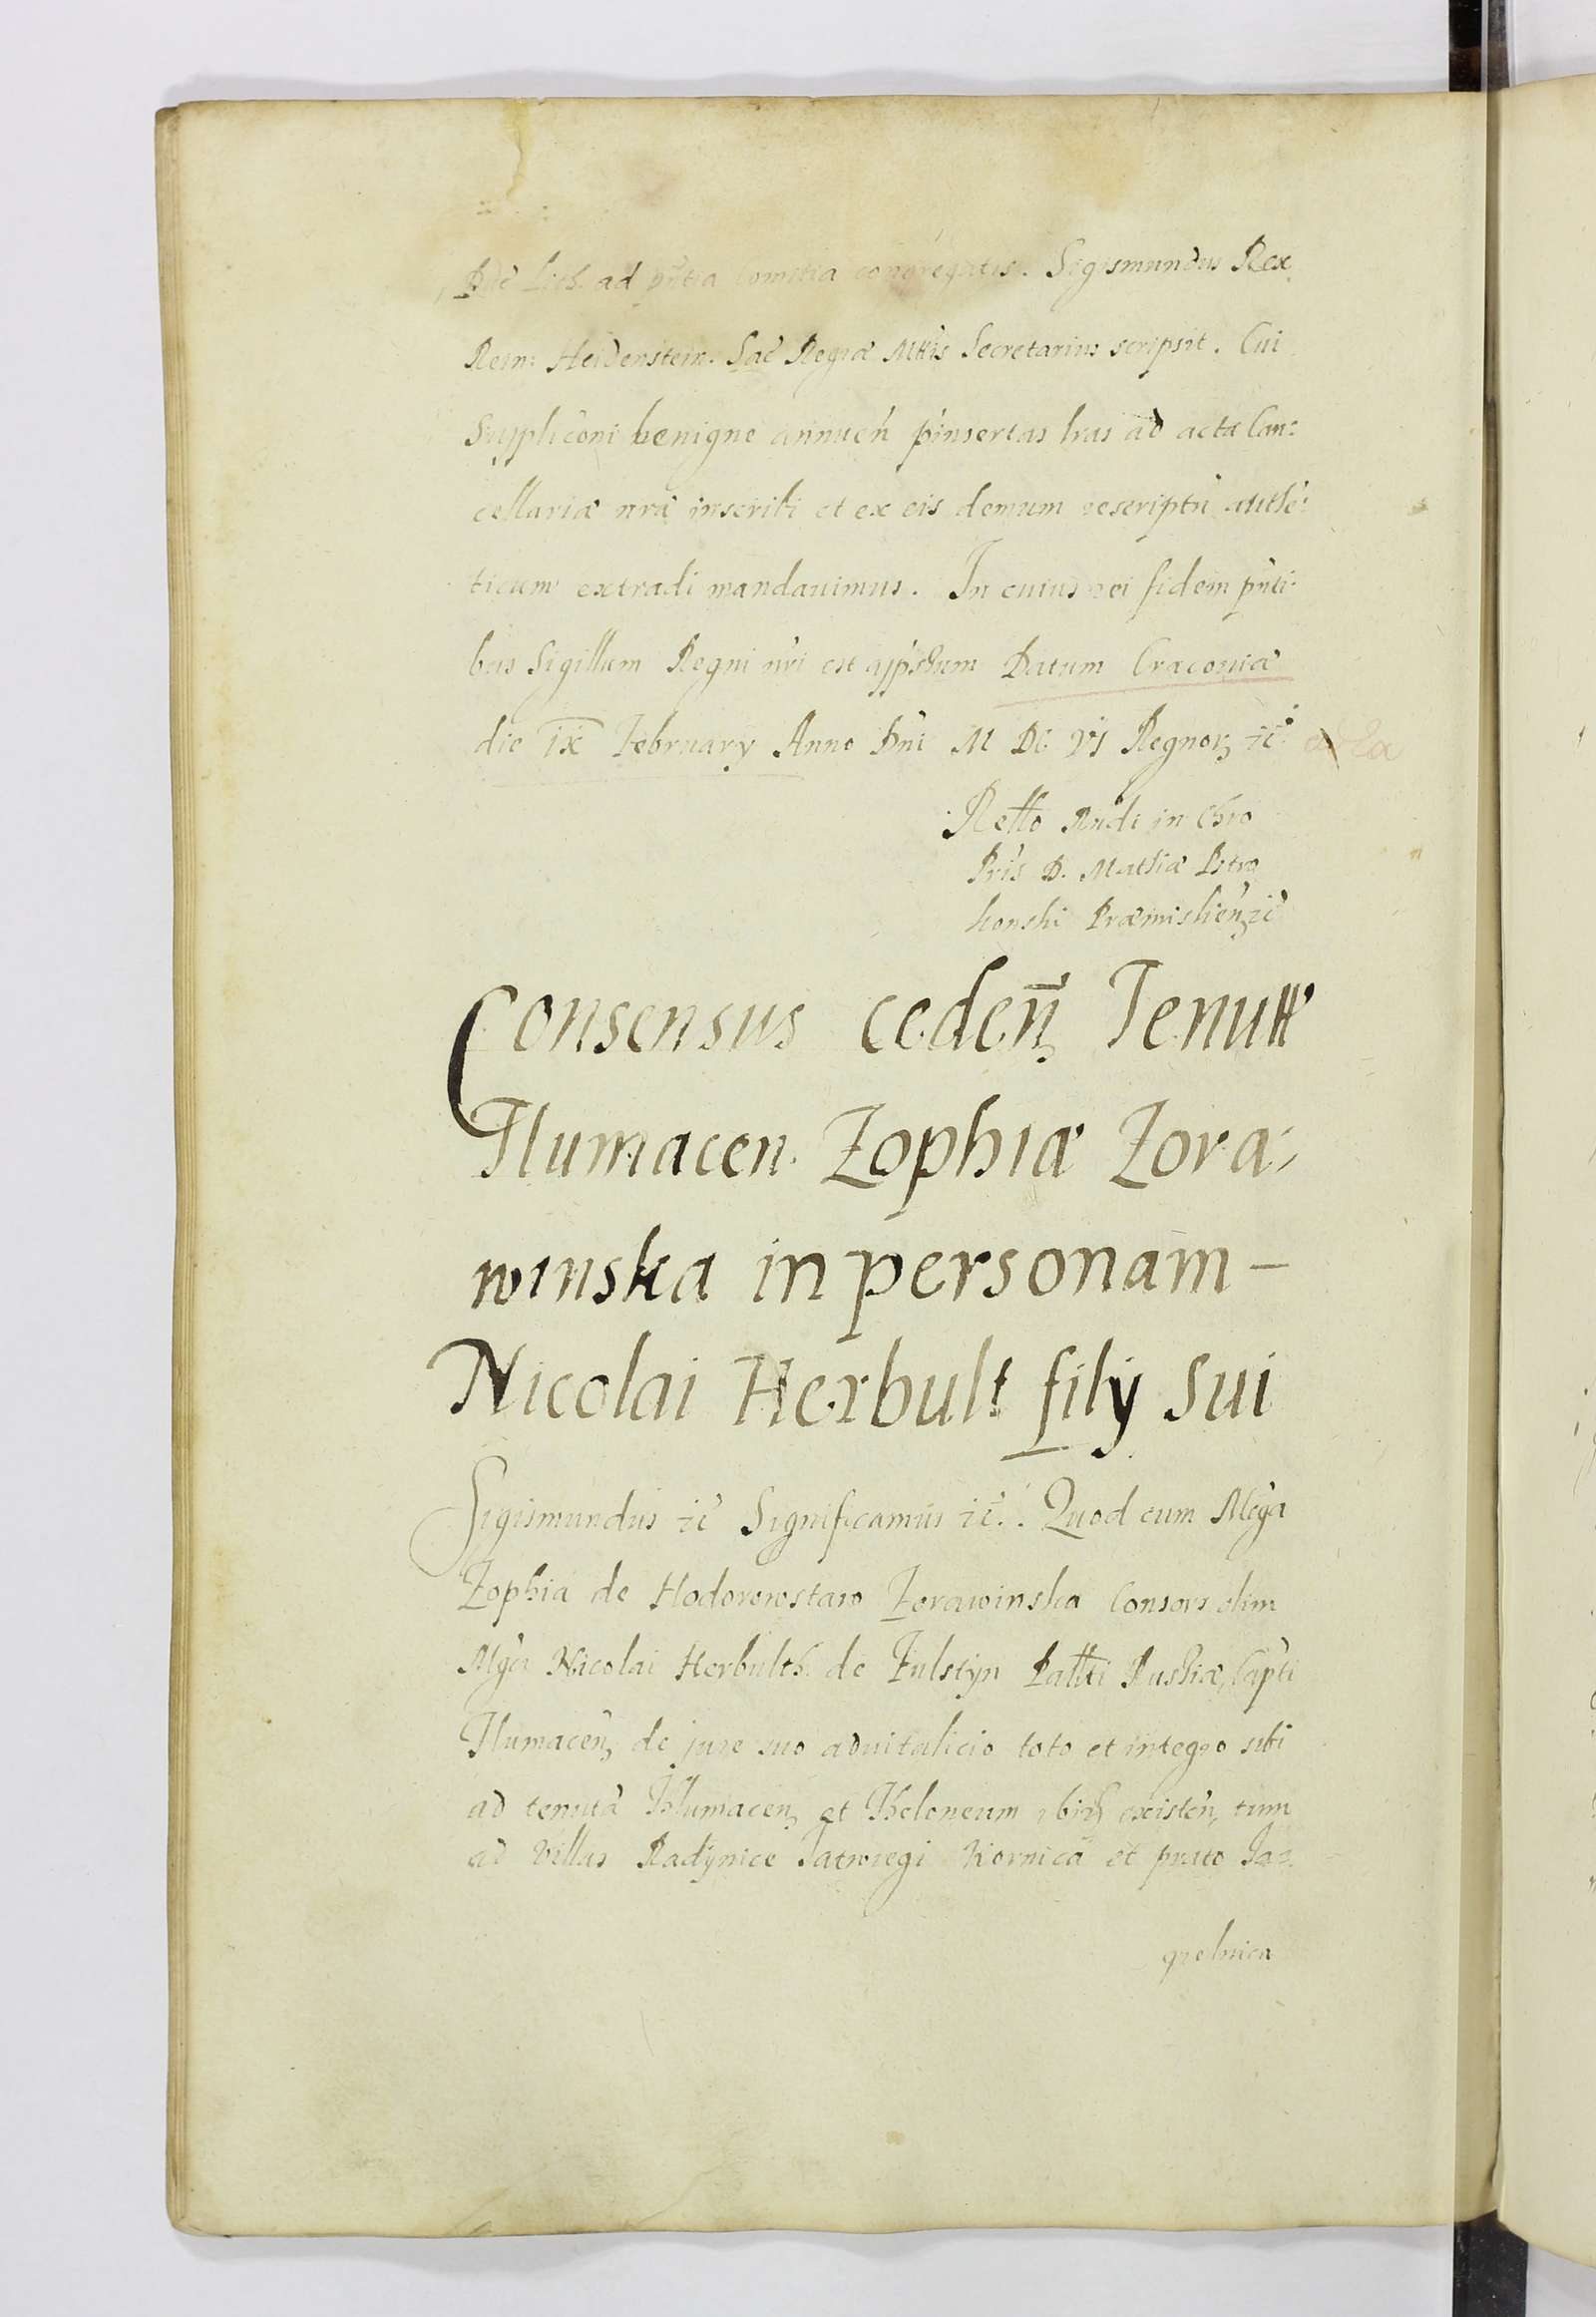 Lith. ad pn̄tia comitia congregatis. Sigismundus Rex
Rein: Heidenstein. Sac̄ Regiæ Mttis Secretarius scripsit. Cui
Supplicōni benigne annuen̄ p̄insertas lr̄as ad acta Can:
cellariæ nr̄a inscribi et ex eis demum rescriptū authē:
ticum extradi mandauimus. In cuius rei fidem pn̄ti:
bus Sigillum Regni nr̄i est app̄sum Datum Cracouiæ
die ix February Anno Dn̄i M DC VI Regnor, zc̄
Retto Rn̄di in Chro
Pr̄is D. Mathiæ Pstro
konski Præmislien, zc̄
Consensus ceden̄ Tenuttæ
Tlumacen. Zophiæ Zora,
winska in personam –
Nicolai Herbult filÿ sui
Sigismundus zc̄ Significamus zc̄. Quod cum Mgc̄a
Zophia de Hodorowstaw Zorawinska Consors olim
Mgc̄i Nicolai Herbulth de Fulstÿn Pallti Russiæ, Capti
Tlumacen̄, de jure suo aduitalicio toto et integro sibi
ad tenutā Thlumacen, et Theloneum ibid existen̄, tum
ad Villas Radÿnice Jatwiegi Kornica et prato Ja=
grelnica